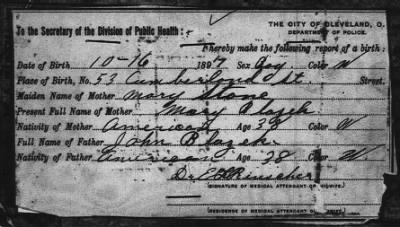 THE CITY OF CLEVELAND, O.
DEPARTMENT OF POLICE.
To the Secretary of the Division of Public Health:
I hereby make the following report of a birth:
Date of Birth 10-16 1897 Sex Boy Color W
Place of Birth, No. 53 Cumberland St Street.
Maiden Name of Mother Mary Stone
Present Full Name of Mother Mary Blazek
Nativity of Mother American Age 38 Color W
Full Name of Father John Blazek
Nativity of Father American Age 38 Color W.
Dr
(SIGNATURE OF MEDICAL ATTENDANT OR MIDWIFE.)
(RESIDENCE OF MEDICAL ATTENDANT OR MIDWIFE.)